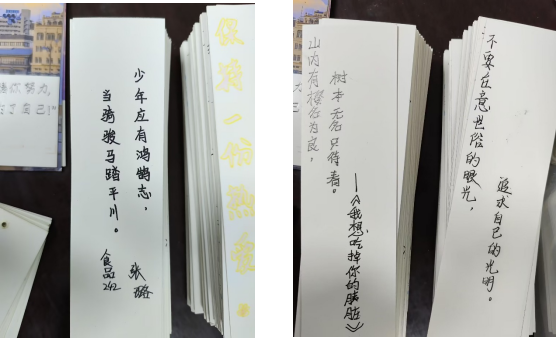 努力,
了自己!"
少年应有鸿鹄志，
当骑骏马踏平川。
食品242
张璐
保持一份热爱。
山内有樱名为良，
树本无名只待春。
——《我想吃掉你的胰脏》
不要在意世俗的眼光，
追求自己的光明。